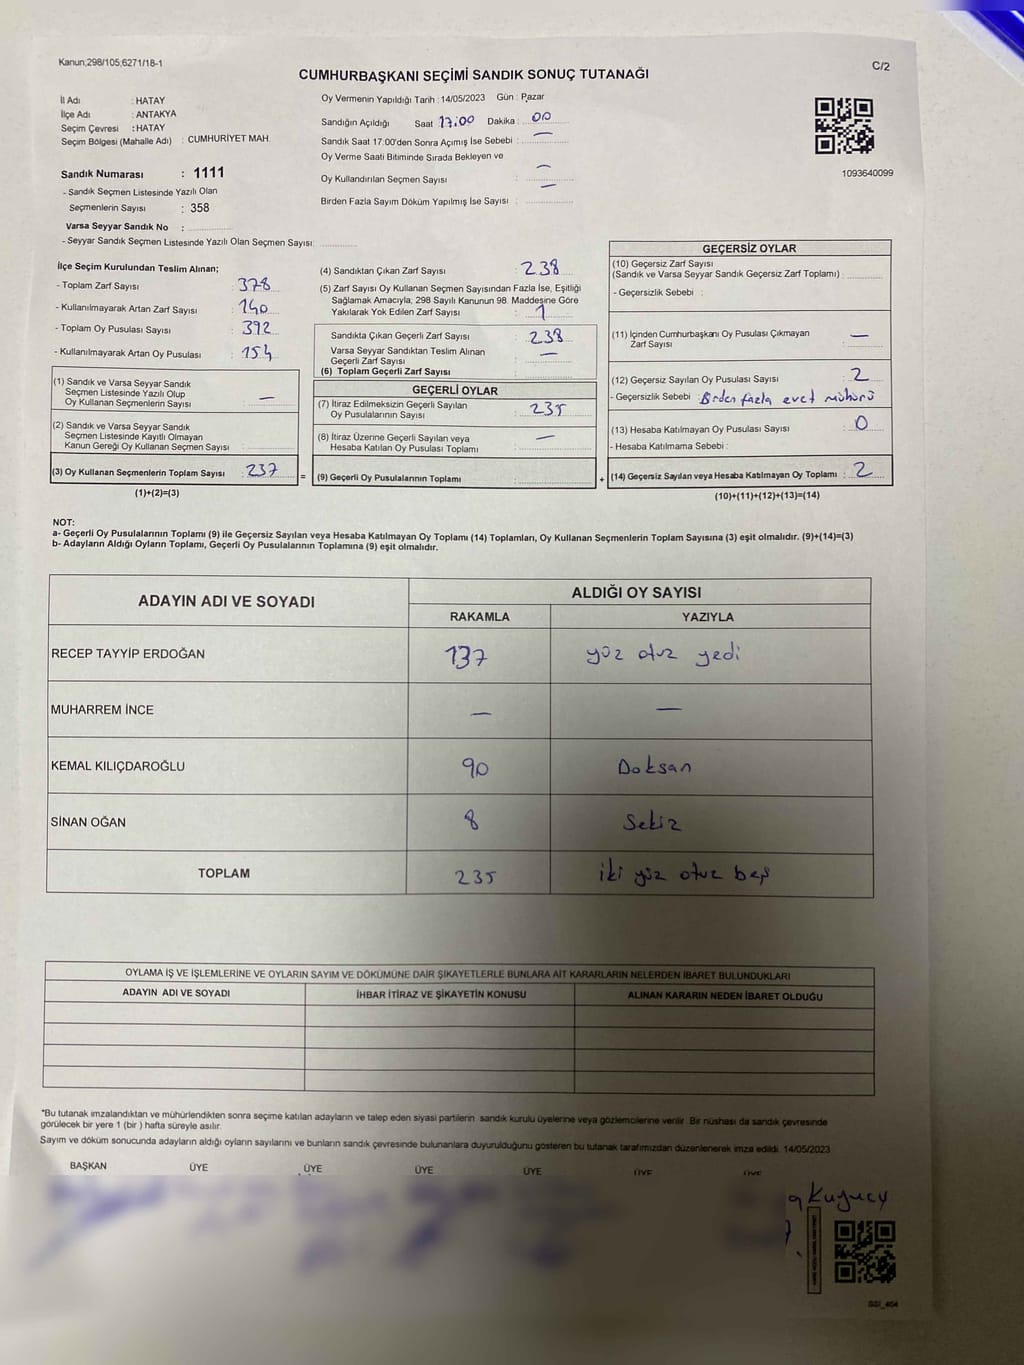 Kanun;298/105;6271/18-1
C/2
CUMHURBAŞKANI SEÇİMİ SANDIK SONUÇ TUTANAĞI
İl Adı : HATAY
İlçe Adı : ANTAKYA
Seçim Çevresi : HATAY
Seçim Bölgesi (Mahalle Adı) : CUMHURİYET MAH.
Sandık Numarası : 1111
- Sandık Seçmen Listesinde Yazılı Olan
Seçmenlerin Sayısı : 358
Varsa Seyyar Sandık No :
- Seyyar Sandık Seçmen Listesinde Yazılı Olan Seçmen Sayısı:
Oy Vermenin Yapıldığı Tarih : 14/05/2023 Gün : Pazar
Sandığın Açıldığı Saat 17:00 Dakika : 00
Sandık Saat 17:00'den Sonra Açımış İse Sebebi : —
Oy Verme Saati Bitiminde Sırada Bekleyen ve
Oy Kullandırılan Seçmen Sayısı : —
Birden Fazla Sayım Döküm Yapılmış İse Sayısı : —
1093640099
İlçe Seçim Kurulundan Teslim Alınan;
- Toplam Zarf Sayısı : 378
- Kullanılmayarak Artan Zarf Sayısı : 140
- Toplam Oy Pusulası Sayısı : 392
- Kullanılmayarak Artan Oy Pusulası : 154
(1) Sandık ve Varsa Seyyar Sandık
Seçmen Listesinde Yazılı Olup
Oy Kullanan Seçmenlerin Sayısı : —
(2) Sandık ve Varsa Seyyar Sandık
Seçmen Listesinde Kayıtlı Olmayan
Kanun Gereği Oy Kullanan Seçmen Sayısı :
(3) Oy Kullanan Seçmenlerin Toplam Sayısı : 237 =
(1)+(2)=(3)
(4) Sandıktan Çıkan Zarf Sayısı : 238
(5) Zarf Sayısı Oy Kullanan Seçmen Sayısından Fazla İse, Eşitliği
Sağlamak Amacıyla, 298 Sayılı Kanunun 98. Maddesine Göre
Yakılarak Yok Edilen Zarf Sayısı : 1
Sandıkta Çıkan Geçerli Zarf Sayısı : 238
Varsa Seyyar Sandıktan Teslim Alınan
Geçerli Zarf Sayısı : —
(6) Toplam Geçerli Zarf Sayısı :
GEÇERLİ OYLAR
(7) İtiraz Edilmeksizin Geçerli Sayılan
Oy Pusulalarının Sayısı : 235
(8) İtiraz Üzerine Geçerli Sayılan veya
Hesaba Katılan Oy Pusulası Toplamı : —
(9) Geçerli Oy Pusulalarının Toplamı : +
GEÇERSİZ OYLAR
(10) Geçersiz Zarf Sayısı
(Sandık ve Varsa Seyyar Sandık Geçersiz Zarf Toplamı) :
- Geçersizlik Sebebi :
(11) İçinden Cumhurbaşkanı Oy Pusulası Çıkmayan
Zarf Sayısı : —
(12) Geçersiz Sayılan Oy Pusulası Sayısı : 2
- Geçersizlik Sebebi : Birden fazla evet mühürü
(13) Hesaba Katılmayan Oy Pusulası Sayısı : 0
- Hesaba Katılmama Sebebi :
(14) Geçersiz Sayılan veya Hesaba Katılmayan Oy Toplamı : 2
(10)+(11)+(12)+(13)=(14)
NOT:
a- Geçerli Oy Pusulalarının Toplamı (9) ile Geçersiz Sayılan veya Hesaba Katılmayan Oy Toplamı (14) Toplamları, Oy Kullanan Seçmenlerin Toplam Sayısına (3) eşit olmalıdır. (9)+(14)=(3)
b- Adayların Aldığı Oyların Toplamı, Geçerli Oy Pusulalarının Toplamına (9) eşit olmalıdır.
ADAYIN ADI VE SOYADI
ALDIĞI OY SAYISI
RAKAMLA YAZIYLA
RECEP TAYYİP ERDOĞAN 137 yüz otuz yedi
MUHARREM İNCE — —
KEMAL KILIÇDAROĞLU 90 Doksan
SİNAN OĞAN 8 Sekiz
TOPLAM 235 iki yüz otuz beş
OYLAMA İŞ VE İŞLEMLERİNE VE OYLARIN SAYIM VE DÖKÜMÜNE DAİR ŞİKAYETLERLE BUNLARA AİT KARARLARIN NELERDEN İBARET BULUNDUKLARI
ADAYIN ADI VE SOYADI İHBAR İTİRAZ VE ŞİKAYETİN KONUSU ALINAN KARARIN NEDEN İBARET OLDUĞU
*Bu tutanak imzalandıktan ve mühürlendikten sonra seçime katılan adayların ve talep eden siyasi partilerin sandık kurulu üyelerine veya gözlemcilerine verilir. Bir nüshası da sandık çevresinde
görülecek bir yere 1 (bir ) hafta süreyle asılır.
Sayım ve döküm sonucunda adayların aldığı oyların sayılarını ve bunların sandık çevresinde bulunanlara duyurulduğunu gösteren bu tutanak tarafımızdan düzenlenerek imza edildi. 14/05/2023
BAŞKAN ÜYE ÜYE ÜYE ÜYE ÜYE ÜYE
Kuyucu